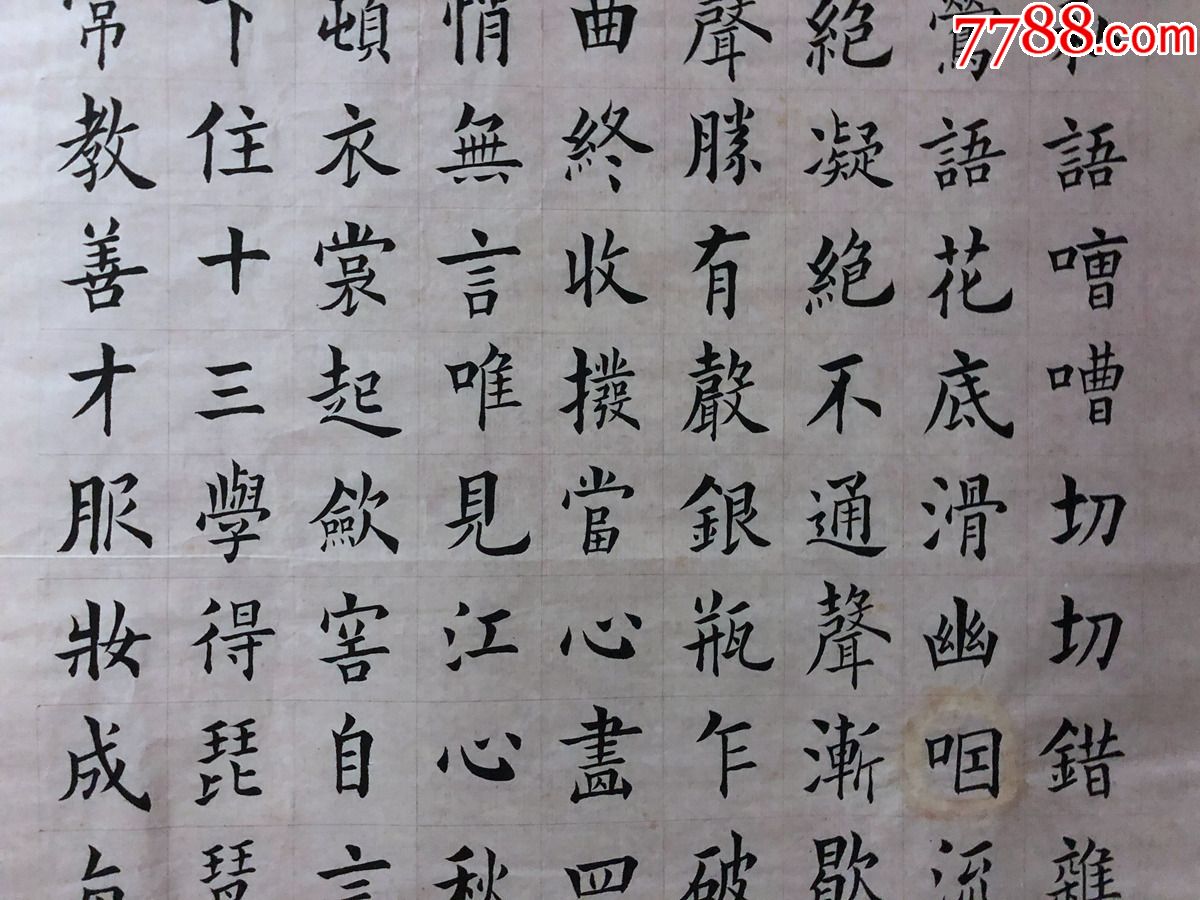 語嘈嘈切切錯雜
鶯語花底滑幽咽流
絕凝絕不通聲漸歇
聲勝有聲銀瓶乍破
曲終收撥當心畫四
悄無言唯見江心秋
頓衣裳起歛容自言
下住十三學得琵琶
常教善才服妝成每
7788.com